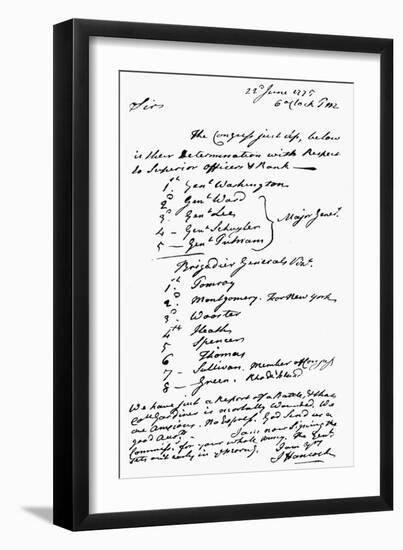 22d June 1775
6 oClock P M
Sirs
The Congress just up, below
is their Determination with Respect
to Superior Officers & Rank —
1st Genl Washington
2d Genl Ward
3d Genl Lee
4 — Genl Schuyler
5 — Genl Putnam
Major Genls
Brigadier Generals Vizt
1st Pomroy
2d Montgomery. For New York
3d Wooster
4th Heath
5 Spencer
6 Thomas
7 — Sullivan. Member of Congress
8 — Green. Rhode Island
We have just a Report of a Battle, & that
Col Gardiner is mortally Wounded. We
are Anxious. No Express. God Send us a
good Acct. I am now Signing the
Commiss. for your whole Army. The Genl
sets out early in ye Morng.
I am Yrs
J Hancock